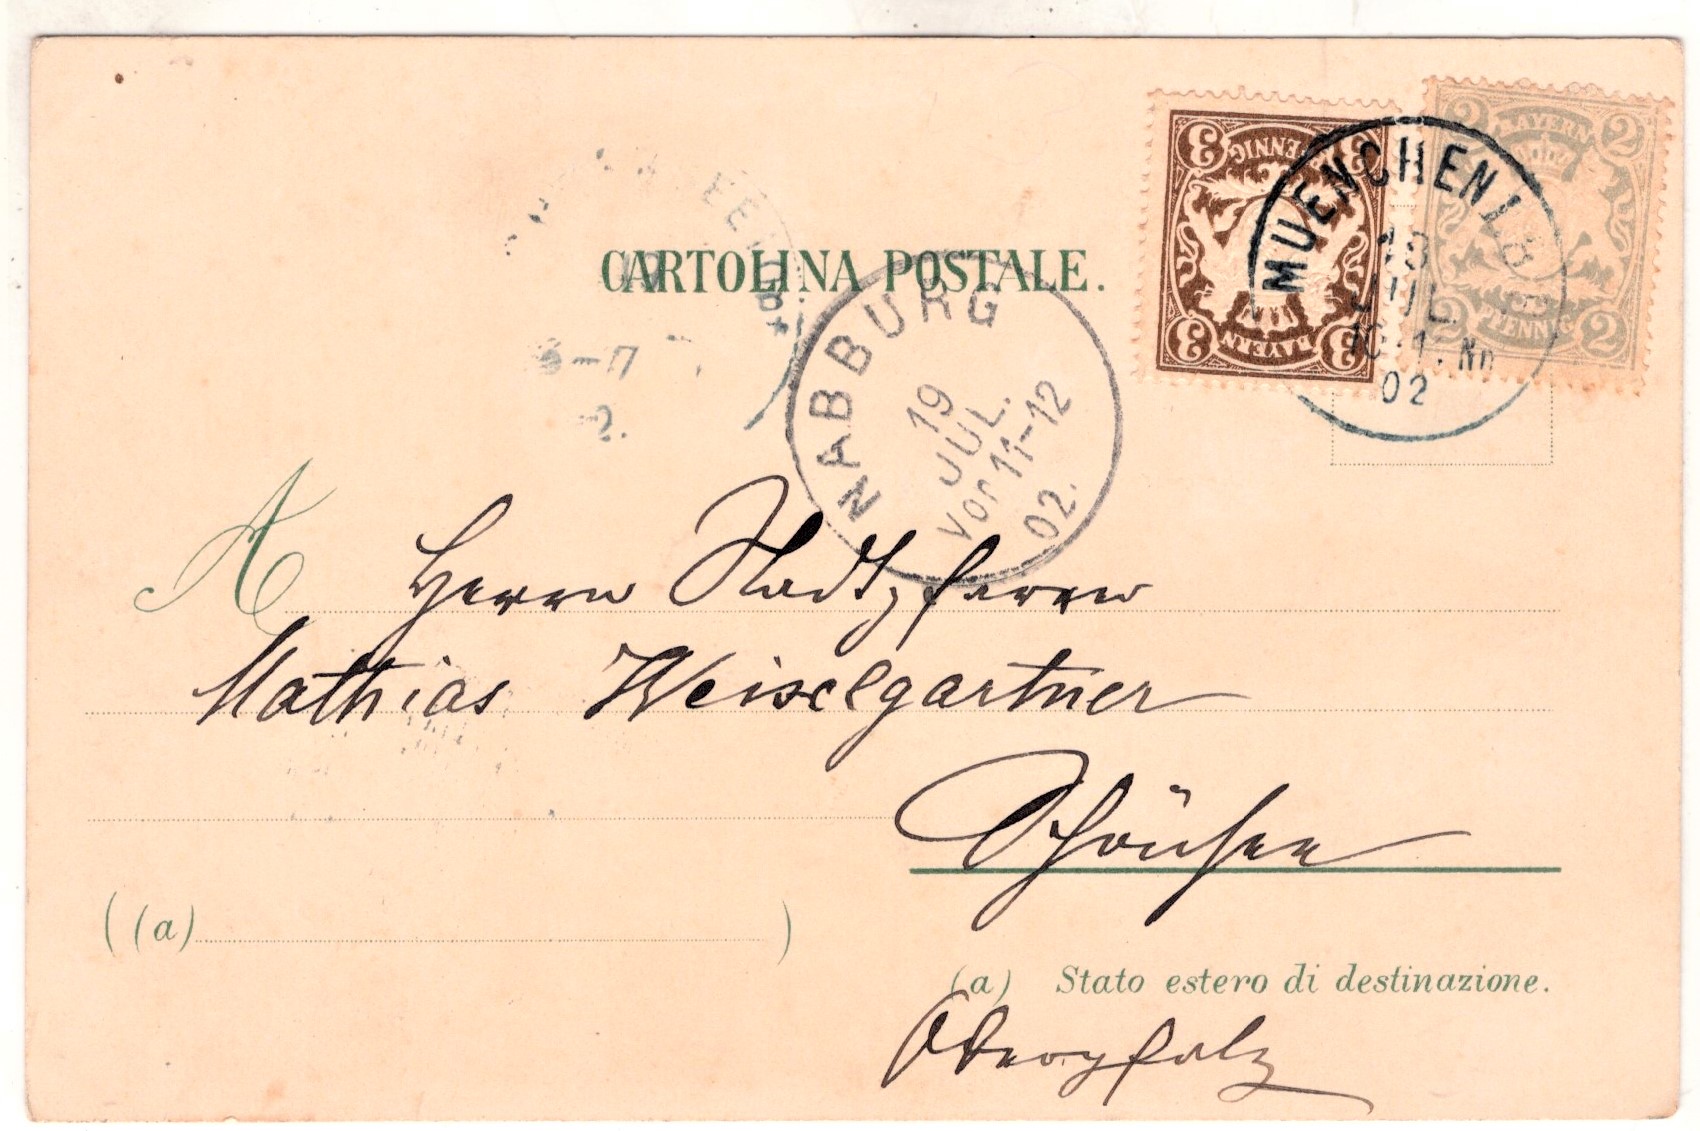 CARTOLINA POSTALE.
3 3
PFENNIG
BAYERN
3 3
2 BAYERN 2
2 PFENNIG 2
MUENCHEN
JUL.
02
NABBURG
19
JUL.
Vor 11-12
02.
6-7
2.
A
Herrn Stadtpfarrer
Mathias Weiselgartner
Schönsee
((a) )
(a) Stato estero di destinazione.
Oberpfalz